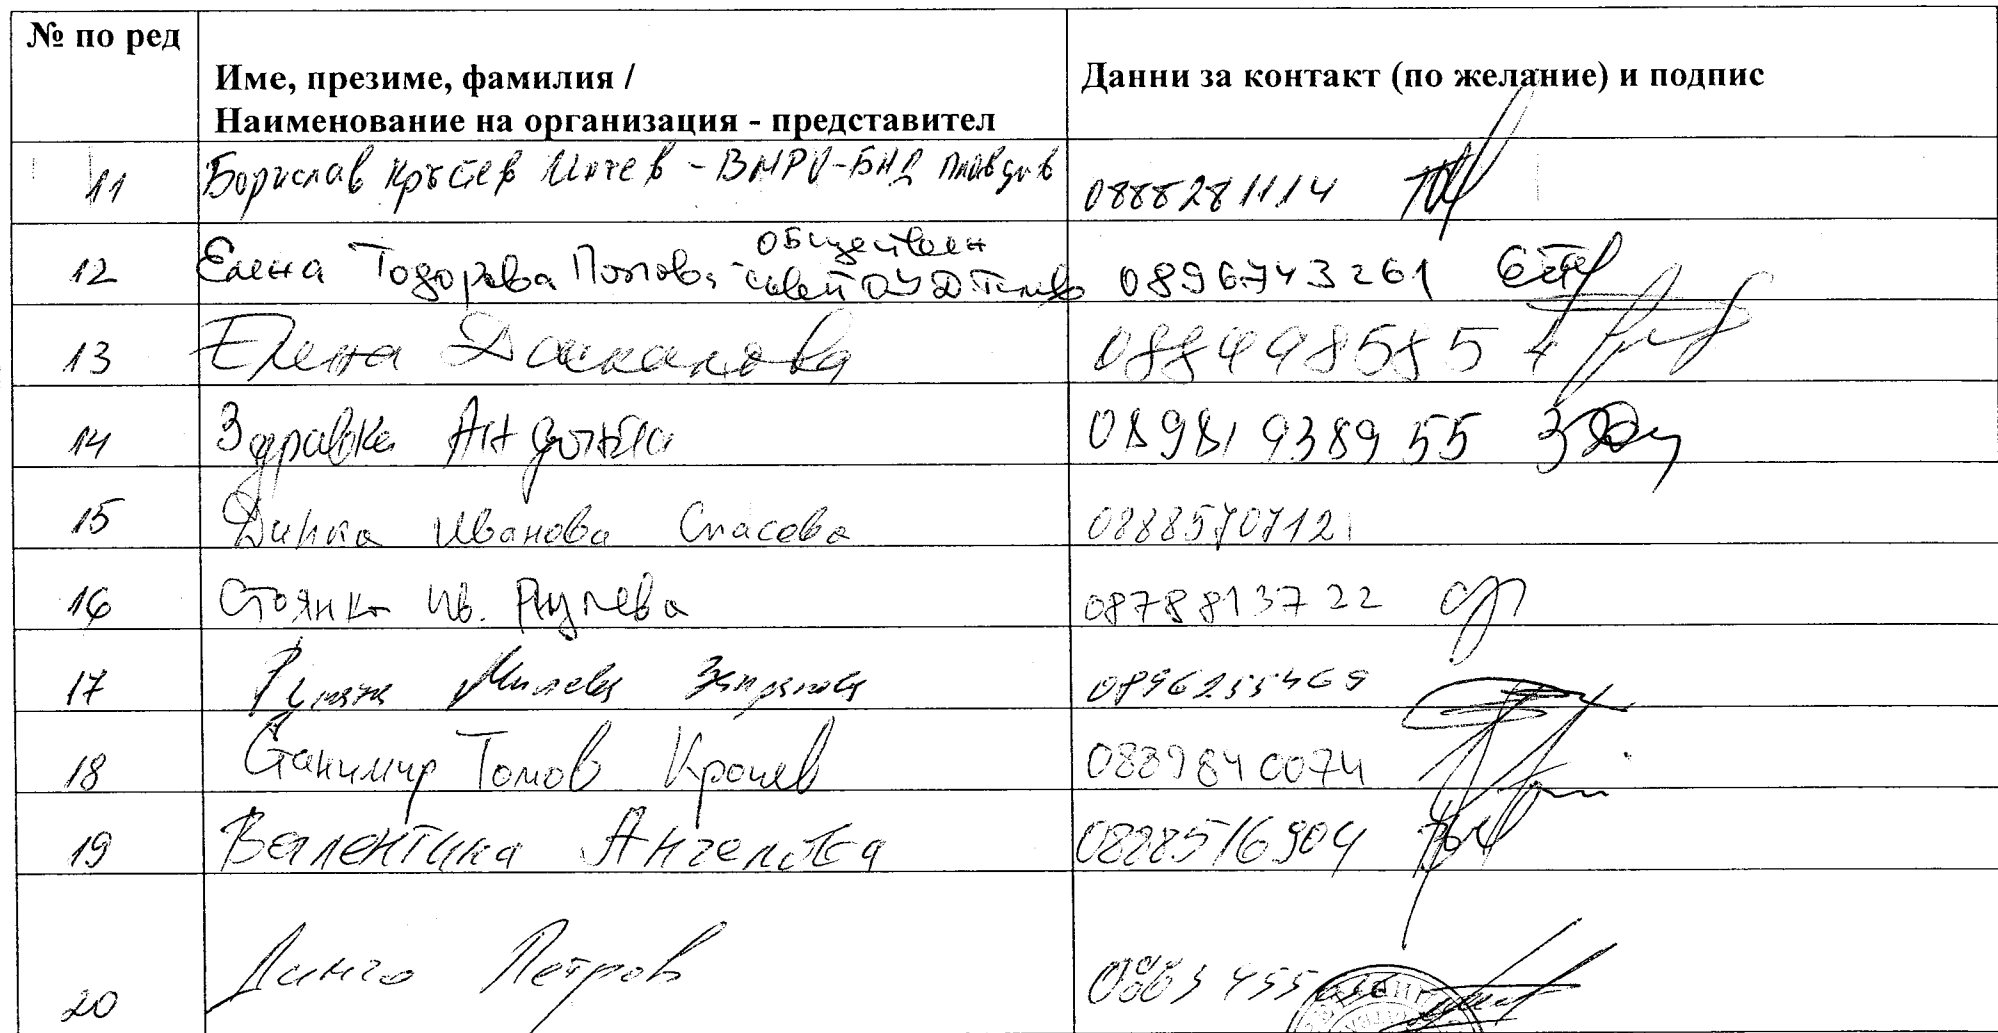 № по ред
Име, презиме, фамилия /
Наименование на организация - представител
Данни за контакт (по желание) и подпис
11 Борислав Кръстев Инчев - ВМРО-БНД Пловдив 0888281114
12 Елена Тодорова Попова - обществен съвет ОУ Д Талев 0896743261
13 Елена 0884985854
14 Здравка 08981938955
15 Динка Иванова Спасова 0888570712
16 Стоянка Ив. 0878813722
17 Румяна Милева 0896255469
18 Станимир Томов 0889840074
19 Валентина Ангелова 0888516904
20 Динго Петров